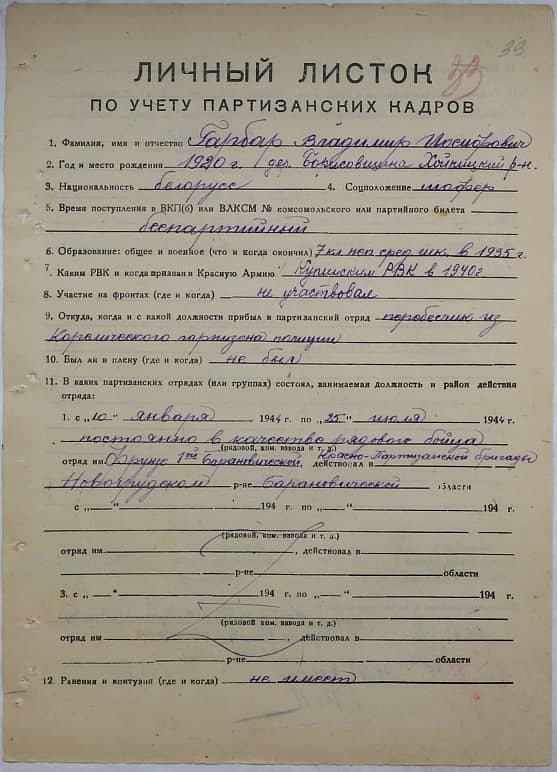 33
ЛИЧНЫЙ ЛИСТОК
ПО УЧЕТУ ПАРТИЗАНСКИХ КАДРОВ
1. Фамилия, имя и отчество Гарбар Владимир Иосифович
2. Год и место рождения 1920 г. дер. Борисовщина Хойницкий р-н.
3. Национальность белорусс 4. Соцположение шофер
5. Время поступления в ВКП(б) или ВЛКСМ № комсомольского или партийного билета
беспартийный
6. Образование: общее и военное (что и когда окончил) 7 кл неп. сред. шк. в 1935 г.
7. Каким РВК и когда призван в Красную Армию РВК в 1940 г
8. Участие на фронтах (где и когда) не участвовал
9. Откуда, когда и с какой должности прибыл в партизанский отряд перебесчик из
Кореличского гарнизона полиции
10. Был ли в плену (где и когда) не был
11. В каких партизанских отрядах (или группах) состоял, занимаемая должность и район действия
отряда:
1. с „10“ января 1944 г. по „25“ июля 1944 г.
постоянно в качестве рядового бойца
(рядовой, ком. взвода и т. д.)
отряд им. Фрунзе 1ой Барановической, действовал в Красно-Партизанской бригады
Новогрудском р-не Барановической области
с „ “ 194 г. по „ “ 194 г.
(рядовой, ком. взвода и т. д.)
отряд им. , действовал в
р-не области
3. с „ “ 194 г. по „ “ 194 г.
(рядовой, ком. взвода и т. д.)
отряд им , действовал в
р-не области
12. Ранения и контузии (где и когда) не имеет